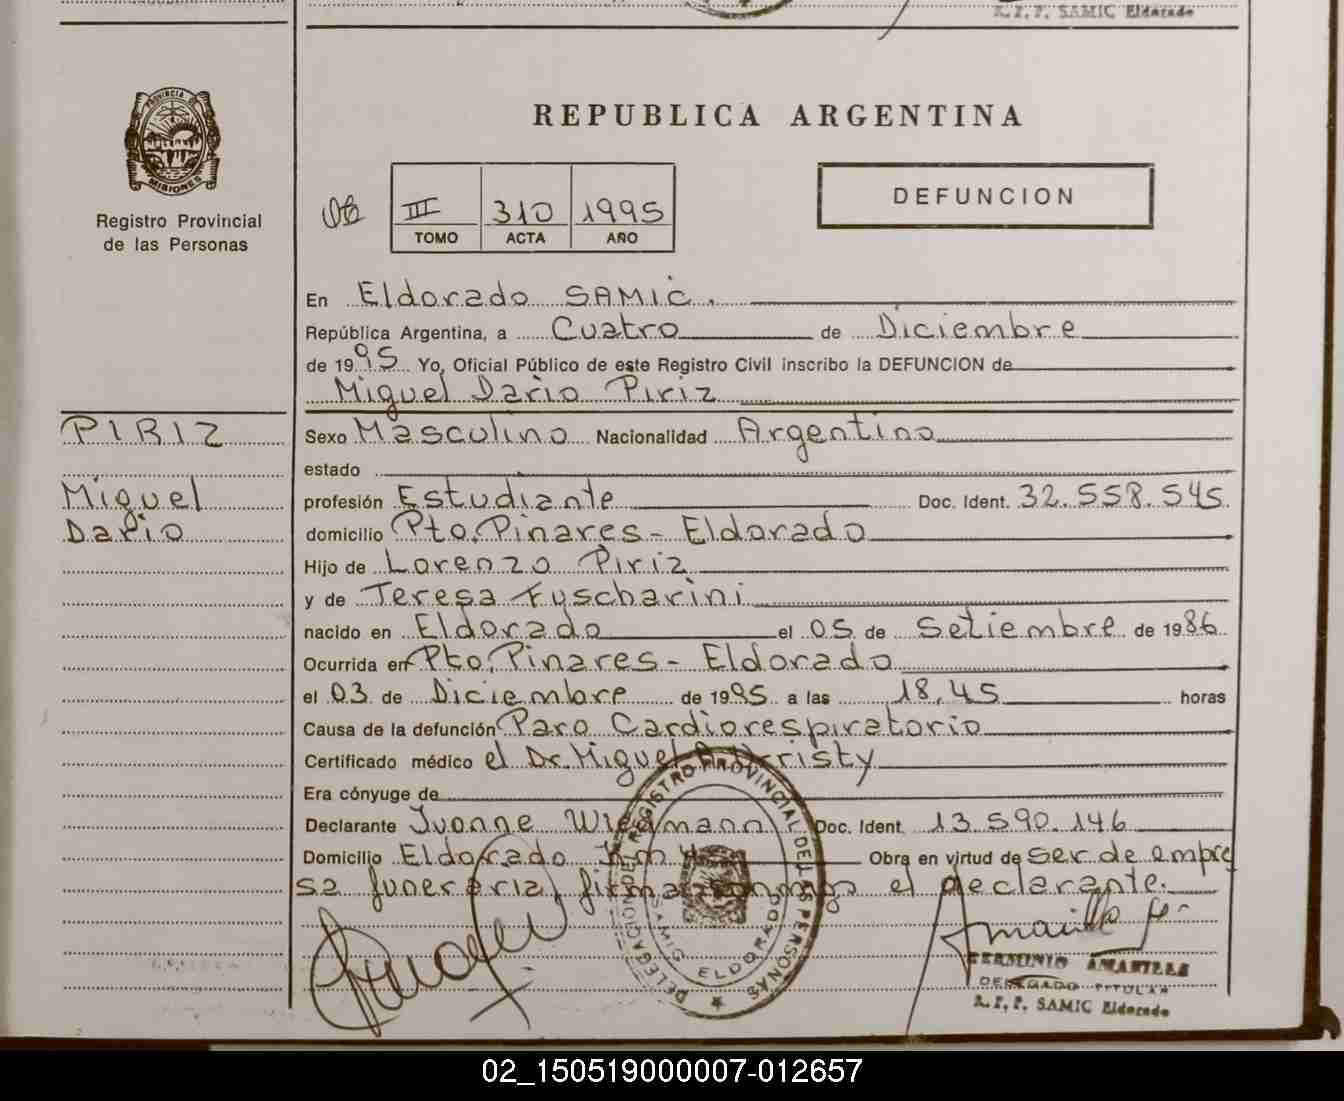 R.P.P. SAMIC Eldorado
PROVINCIA DE
MISIONES
Registro Provincial
de las Personas
REPUBLICA ARGENTINA
III 310 1995
TOMO ACTA AÑO
DEFUNCION
En Eldorado SAMIC.
República Argentina, a Cuatro de Diciembre
de 1995 Yo, Oficial Público de este Registro Civil inscribo la DEFUNCION de
Miguel Dario Piriz
PIRIZ
Miguel
Dario
Sexo Masculino Nacionalidad Argentino
estado
profesión Estudiante Doc. Ident. 32.558.545
domicilio Pto. Pinares - Eldorado
Hijo de Lorenzo Piriz
y de Teresa Fuscharini
nacido en Eldorado el 05 de Setiembre de 1986
Ocurrida en Pto. Pinares - Eldorado
el 03 de Diciembre de 1995 a las 18,45 horas
Causa de la defunción Paro Cardiorespiratorio
Certificado médico el Dr. Miguel A. Kristy
Era cónyuge de
Declarante Ivonne Wiedmann Doc. Ident. 13.590.146
Domicilio Eldorado Obra en virtud de ser de empre
sa funeraria, firma conmigo el declarante.
DELEGACION DEL REGISTRO PROVINCIAL DE LAS PERSONAS
SAMIC ELDORADO
HERMINIO AMARILLA
DELEGADO TITULAR
R.P.P. SAMIC Eldorado
02_150519000007-012657